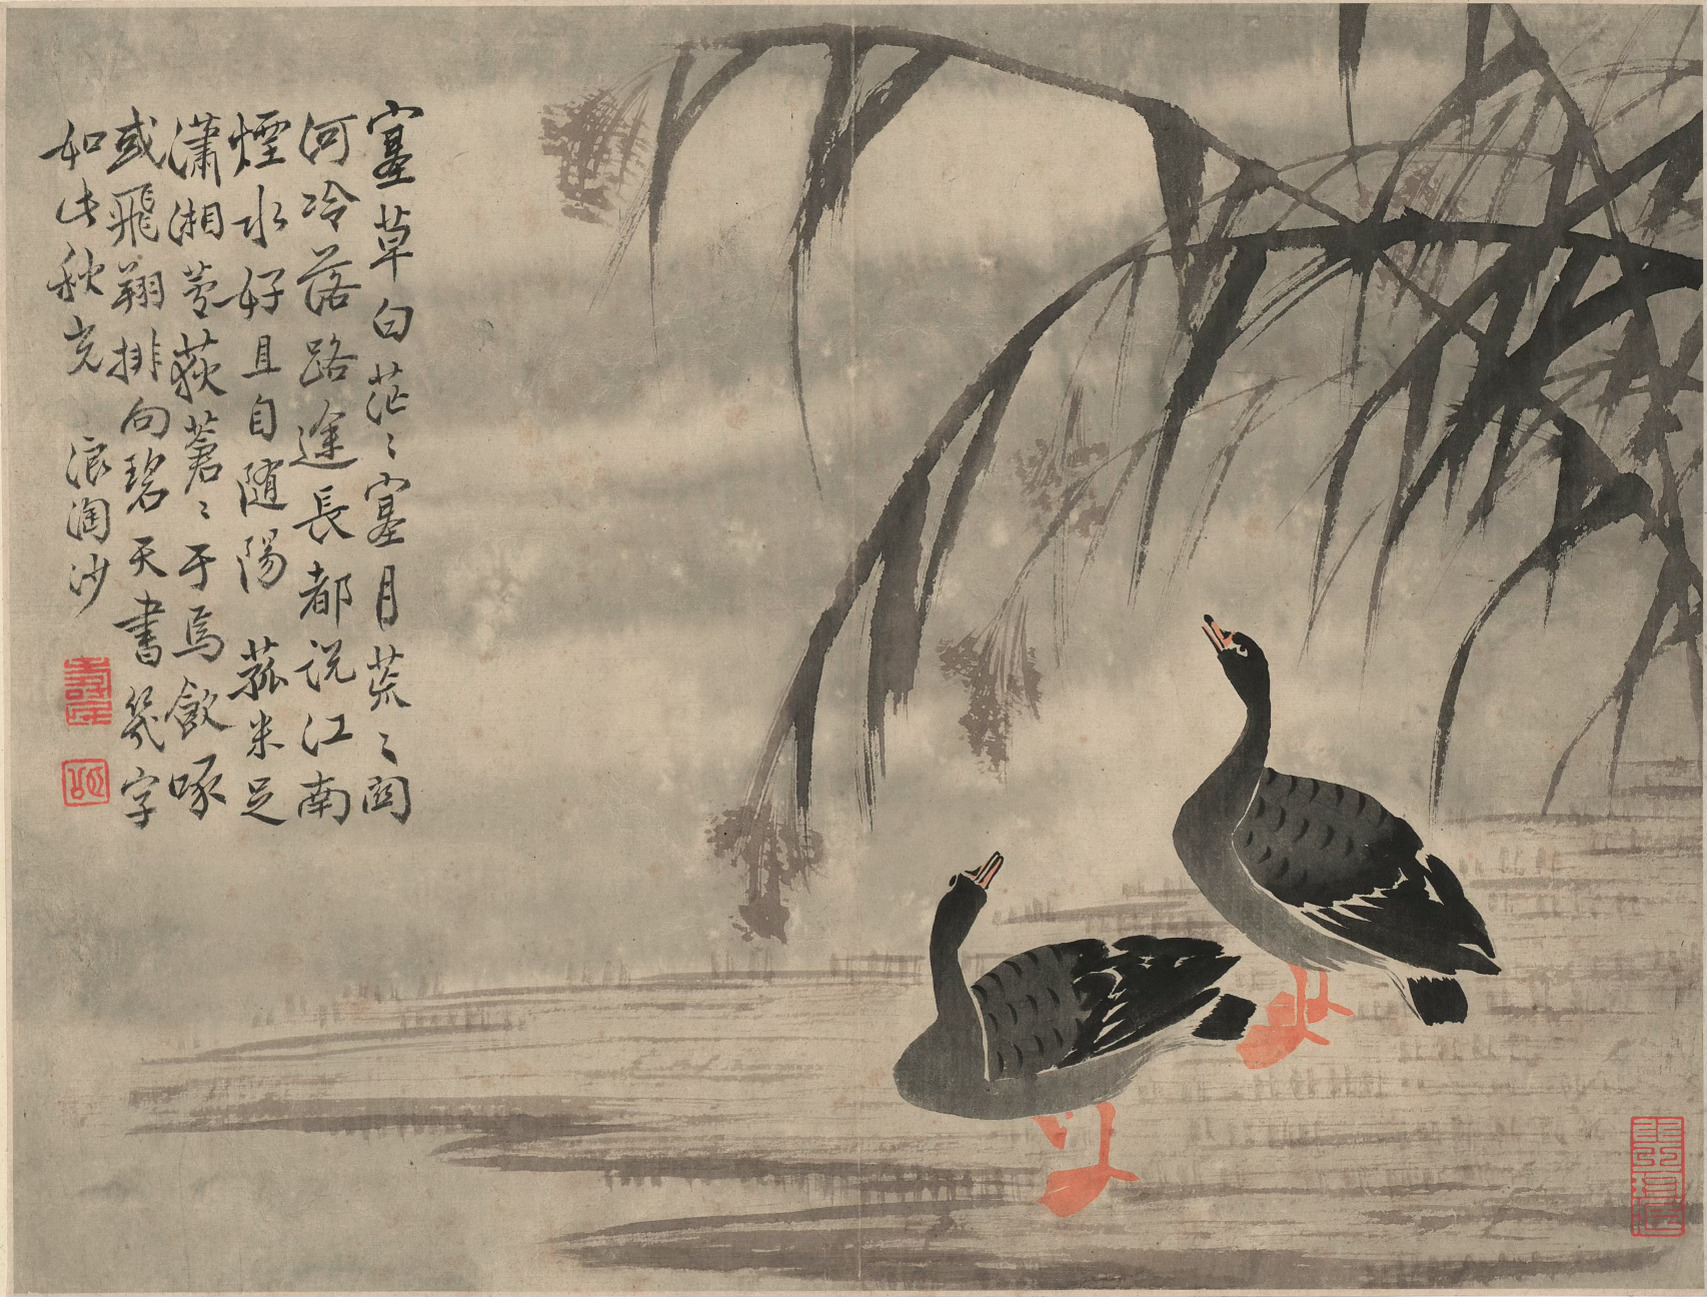 塞草白茫〻塞月荒〻関
河冷落路途長都说江南
煙水好且自随陽 菰米足
瀟湘芦荻蒼〻于焉飲啄
或飛翔排向碧天書幾字
如此秋光 浪淘沙